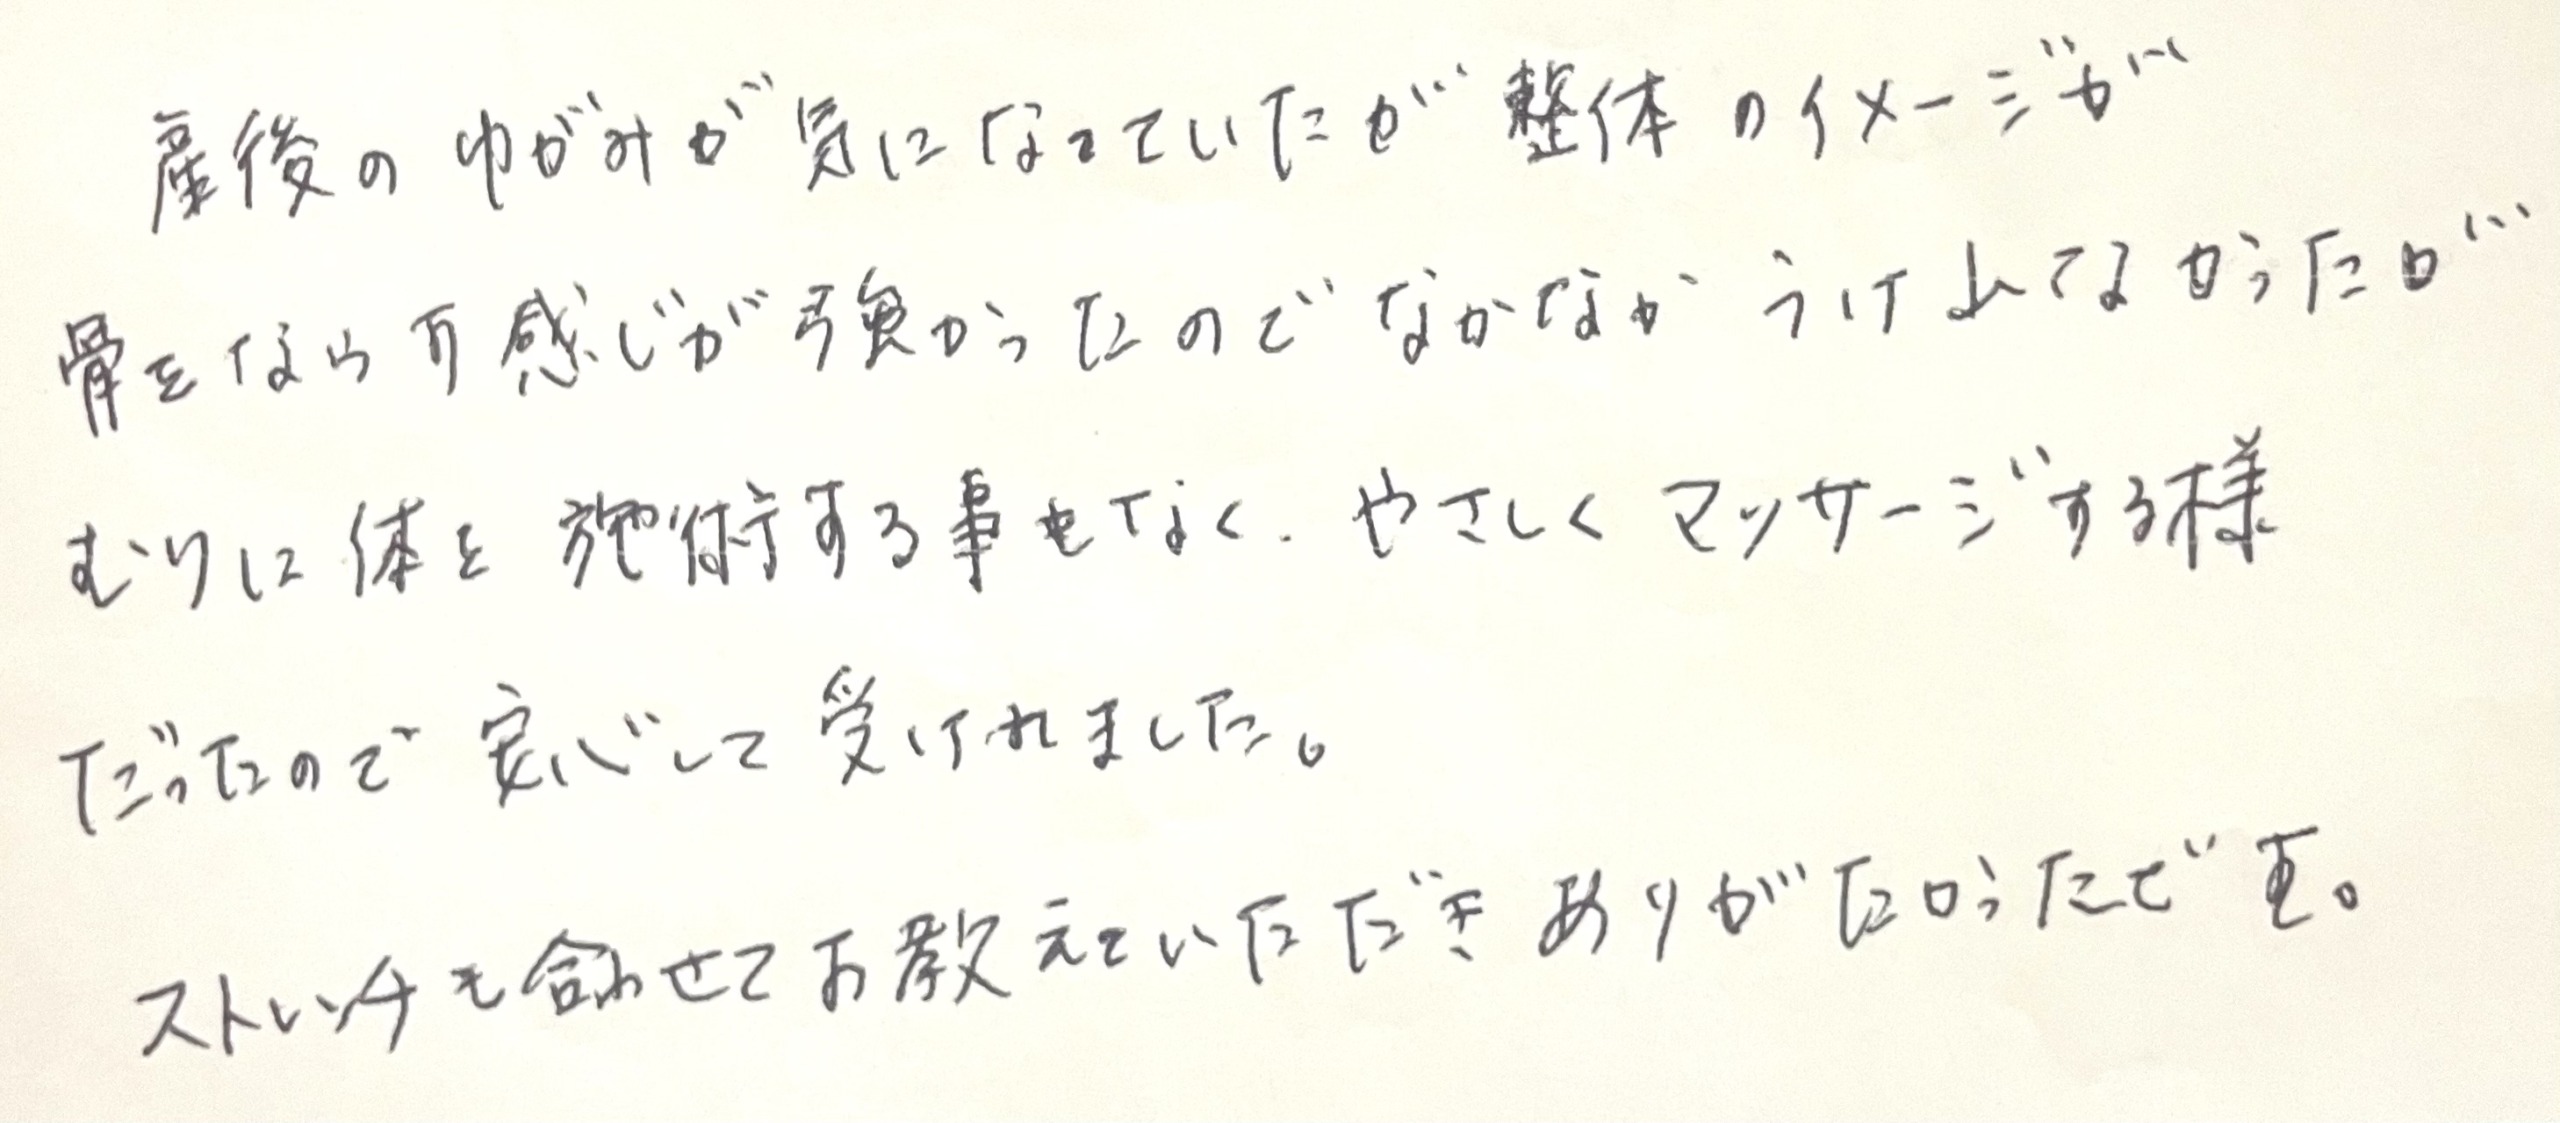 産後のゆがみが気になっていたが整体のイメージが
骨をならす感じが強かったのでなかなかうけれてなかったが
むりに体を施術する事もなく、やさしくマッサージする様
だったので安心して受けれました。
ストレッチも合わせてお教えていただきありがたかったです。